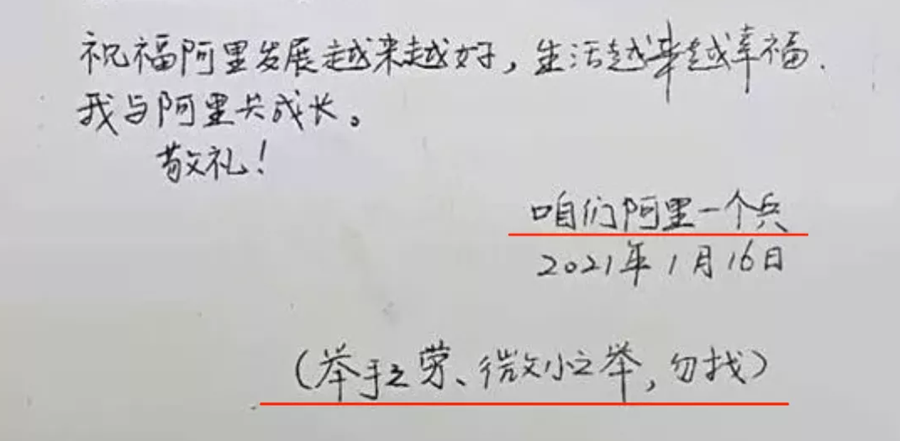 祝福阿里发展越来越好，生活越幸越幸福.
我与阿里共成长。
敬礼！
咱们阿里一个兵
2021年1月16日
（举手之劳、微小之举，勿找）